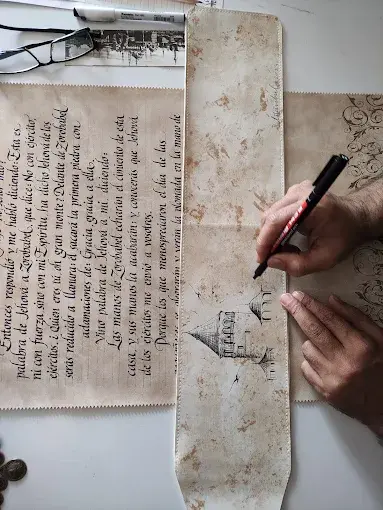 Entonces respondió y me habló diciendo: Esta es
palabra de Jehová a Zorobabel, que dice: No con ejército,
ni con fuerza, sino con mi Espíritu, ha dicho Jehová de los
ejércitos. ¿Quien eres tú, oh gran monte? Delante de Zorobabel
serás reducido a llanura; él sacará la primera piedra con
aclamaciones de: Gracia, gracia a ella.
Vino palabra de Jehová a mí, diciendo:
Las manos de Zorobabel echarán el cimiento de esta
casa, y sus manos la acabarán; y conocerás que Jehová
de los ejércitos me envió a vosotros.
Porque los que menospreciaron el día de las
alegrarán y verán la plomada en la mano de